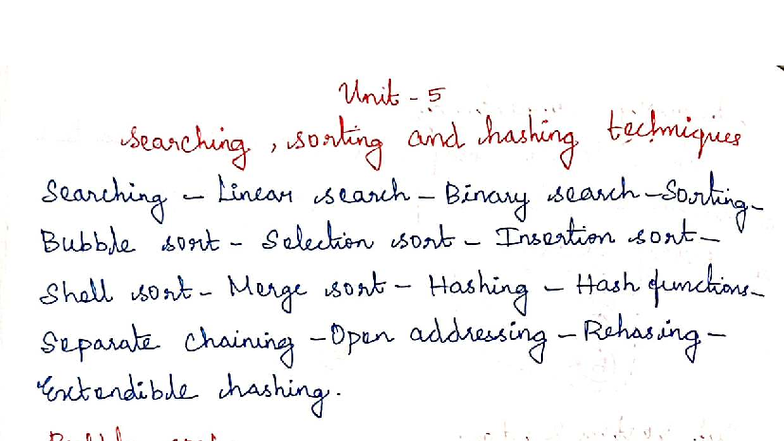 Unit - 5
Searching, sorting and hashing techniques
Searching - Linear search - Binary search - Sorting -
Bubble sort - Selection sort - Insertion sort -
Shell sort - Merge sort - Hashing - Hash functions -
Separate chaining - Open addressing - Rehasing -
Extendible hashing.